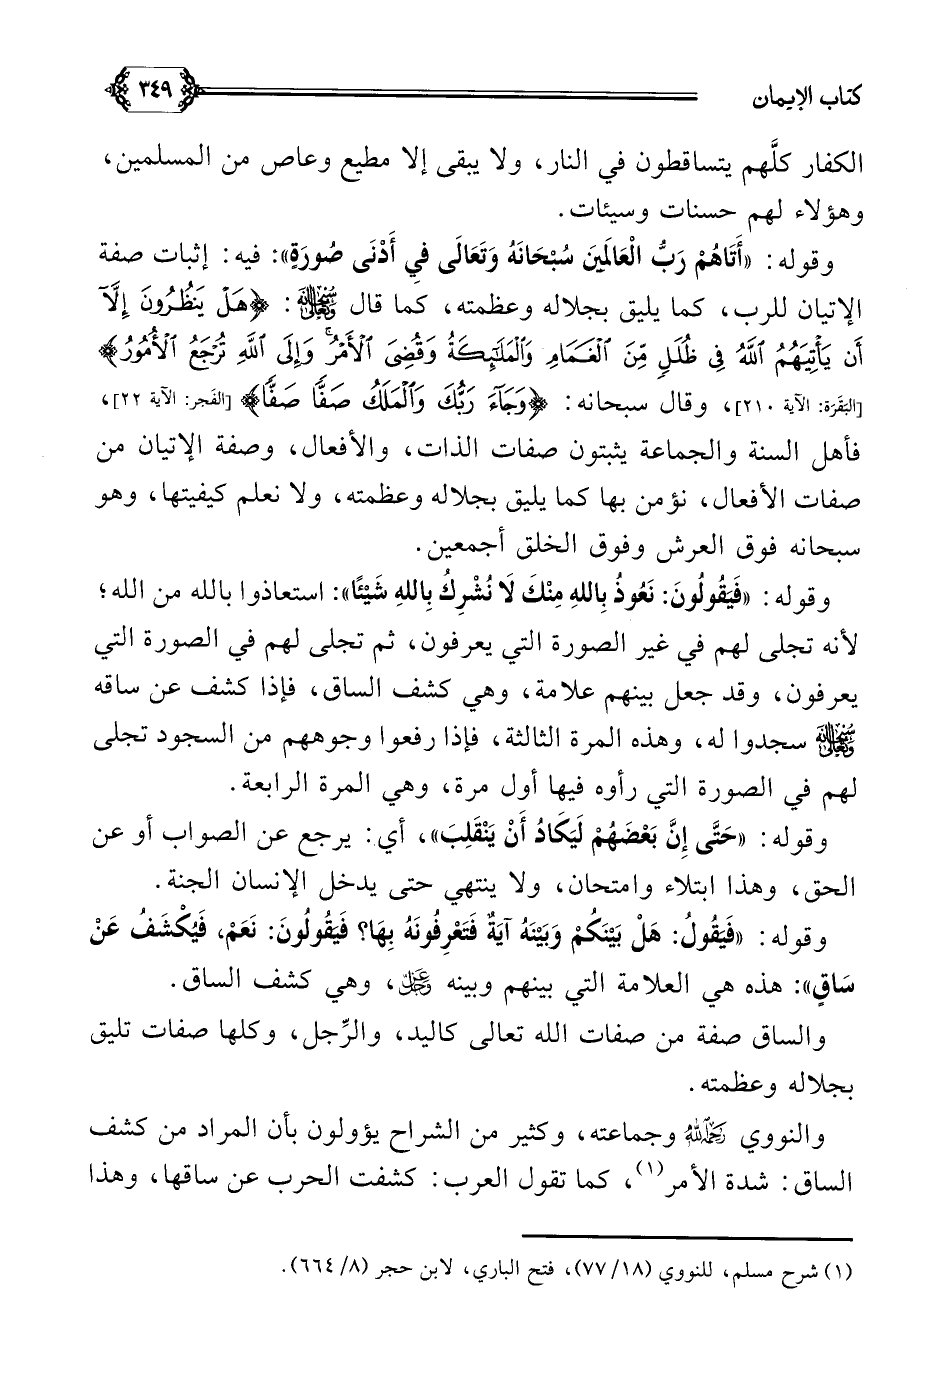 كتاب الإيمان ٣٤٩
الكفار كلَّهم يتساقطون في النار، ولا يبقى إلا مطيع وعاص من المسلمين،
وهؤلاء لهم حسنات وسيئات.
وقوله: «أَتَاهُمْ رَبُّ الْعَالَمِينَ سُبْحَانَهُ وَتَعَالَى فِي أَدْنَى صُورَةٍ»: فيه: إثبات صفة
الإتيان للرب، كما يليق بجلاله وعظمته، كما قال سُبْحَانَهُ وَتَعَالَى: ﴿هَلْ يَنظُرُونَ إِلَّآ
أَن يَأْتِيَهُمُ ٱللَّهُ فِى ظُلَلٍ مِّنَ ٱلْغَمَامِ وَٱلْمَلَٰٓئِكَةُ وَقُضِىَ ٱلْأَمْرُ ۚ وَإِلَى ٱللَّهِ تُرْجَعُ ٱلْأُمُورُ﴾
[البَقَرَة: الآية ٢١٠]، وقال سبحانه: ﴿وَجَآءَ رَبُّكَ وَٱلْمَلَكُ صَفًّا صَفًّا﴾ [الفَجر: الآية ٢٢]،
فأهل السنة والجماعة يثبتون صفات الذات، والأفعال، وصفة الإتيان من
صفات الأفعال، نؤمن بها كما يليق بجلاله وعظمته، ولا نعلم كيفيتها، وهو
سبحانه فوق العرش وفوق الخلق أجمعين.
وقوله: «فَيَقُولُونَ: نَعُوذُ بِاللهِ مِنْكَ لَا نُشْرِكُ بِاللهِ شَيْئًا»: استعاذوا بالله من الله؛
لأنه تجلى لهم في غير الصورة التي يعرفون، ثم تجلى لهم في الصورة التي
يعرفون، وقد جعل بينهم علامة، وهي كشف الساق، فإذا كشف عن ساقه
سُبْحَانَهُ وَتَعَالَى سجدوا له، وهذه المرة الثالثة، فإذا رفعوا وجوههم من السجود تجلى
لهم في الصورة التي رأوه فيها أول مرة، وهي المرة الرابعة.
وقوله: «حَتَّى إِنَّ بَعْضَهُمْ لَيَكَادُ أَنْ يَنْقَلِبَ»، أي: يرجع عن الصواب أو عن
الحق، وهذا ابتلاء وامتحان، ولا ينتهي حتى يدخل الإنسان الجنة.
وقوله: «فَيَقُولُ: هَلْ بَيْنَكُمْ وَبَيْنَهُ آيَةٌ فَتَعْرِفُونَهُ بِهَا؟ فَيَقُولُونَ: نَعَمْ، فَيُكْشَفُ عَنْ
سَاقٍ»: هذه هي العلامة التي بينهم وبينه عَزَّوَجَلَّ، وهي كشف الساق.
والساق صفة من صفات الله تعالى كاليد، والرِّجل، وكلها صفات تليق
بجلاله وعظمته.
والنووي رَحِمَهُ اللهُ وجماعته، وكثير من الشراح يؤولون بأن المراد من كشف
الساق: شدة الأمر(١)، كما تقول العرب: كشفت الحرب عن ساقها، وهذا
(١) شرح مسلم، للنووي (٧٧/١٨)، فتح الباري، لابن حجر (٦٦٤/٨).